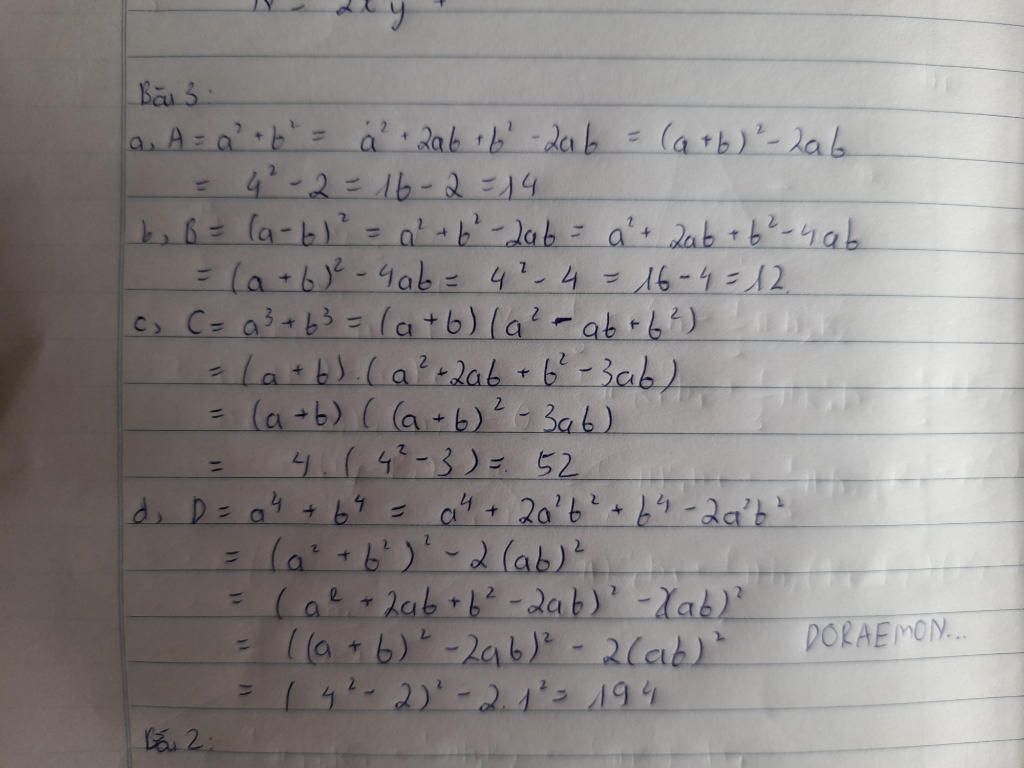 N = 2xy
Bài 3:
a, A = a² + b² = a² + 2ab + b² - 2ab = (a + b)² - 2ab
= 4² - 2 = 16 - 2 = 14
b, B = (a - b)² = a² + b² - 2ab = a² + 2ab + b² - 4ab
= (a + b)² - 4ab = 4² - 4 = 16 - 4 = 12.
c, C = a³ + b³ = (a + b) (a² - ab + b²)
= (a + b) . (a² + 2ab + b² - 3ab)
= (a + b) ( (a + b)² - 3ab)
= 4 . ( 4² - 3 ) = 52
d, D = a⁴ + b⁴ = a⁴ + 2a²b² + b⁴ - 2a²b²
= (a² + b²)² - 2 (ab)²
= (a² + 2ab + b² - 2ab)² - 2(ab)²
= ((a + b)² - 2ab)² - 2(ab)²
DORAEMON...
= ( 4² - 2)² - 2.1² = 194
Bài 2: